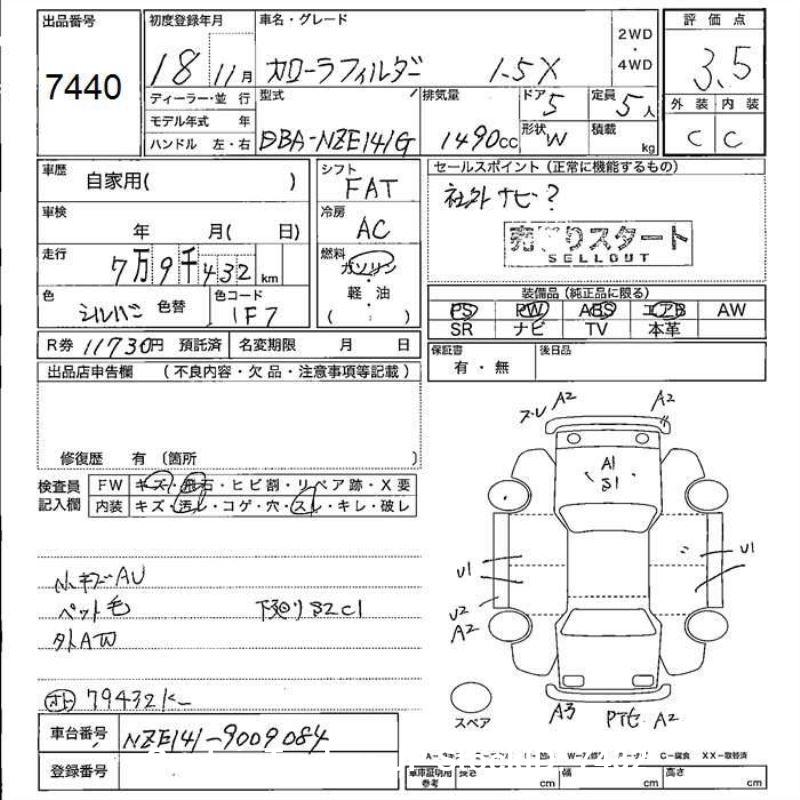 出品番号
7440
初度登録年月
18 11月
車名・グレード
カローラフィルダー 1.5X
2WD
・
4WD
評価点
3.5
外装 内装
C C
ディーラー・並行
モデル年式 年
ハンドル 左・右
型式
DBA-NZE141G
排気量
1490cc
ドア
5
定員
5人
形状
W
積載
kg
車歴
自家用( )
車検
年 月( 日)
走行
7万9千432km
色
シルバー 色替
色コード
1F7
シフト
FAT
冷房
AC
燃料
ガソリン
軽・油
( : )
セールスポイント(正常に機能するもの)
社外ナビ?
売切りスタート
SELLOUT
装備品(純正品に限る)
PS PW ABS エアB AW
SR ナビ TV 本革
R券 11730円 預託済
名変期限 月 日
保証書
有・無
後日品
出品店申告欄 (不良内容・欠品・注意事項等記載)
修復歴 有 〔箇所 〕
検査員
記入欄
FW キズ・飛石・ヒビ割・リペア跡・X要
内装 キズ・汚レ・コゲ・穴・スレ・キレ・破レ
小キズAU
ペット毛
下廻りS2C1
外AW
79432K
車台番号 NZE141-9009084
登録番号
ズレ A2
A2
A1
S1
U1
U1
U2
A2
スペア
A3
A2
C-腐食 XX-取替済
車庫証明用
参考
長さ cm
幅 cm
高さ cm